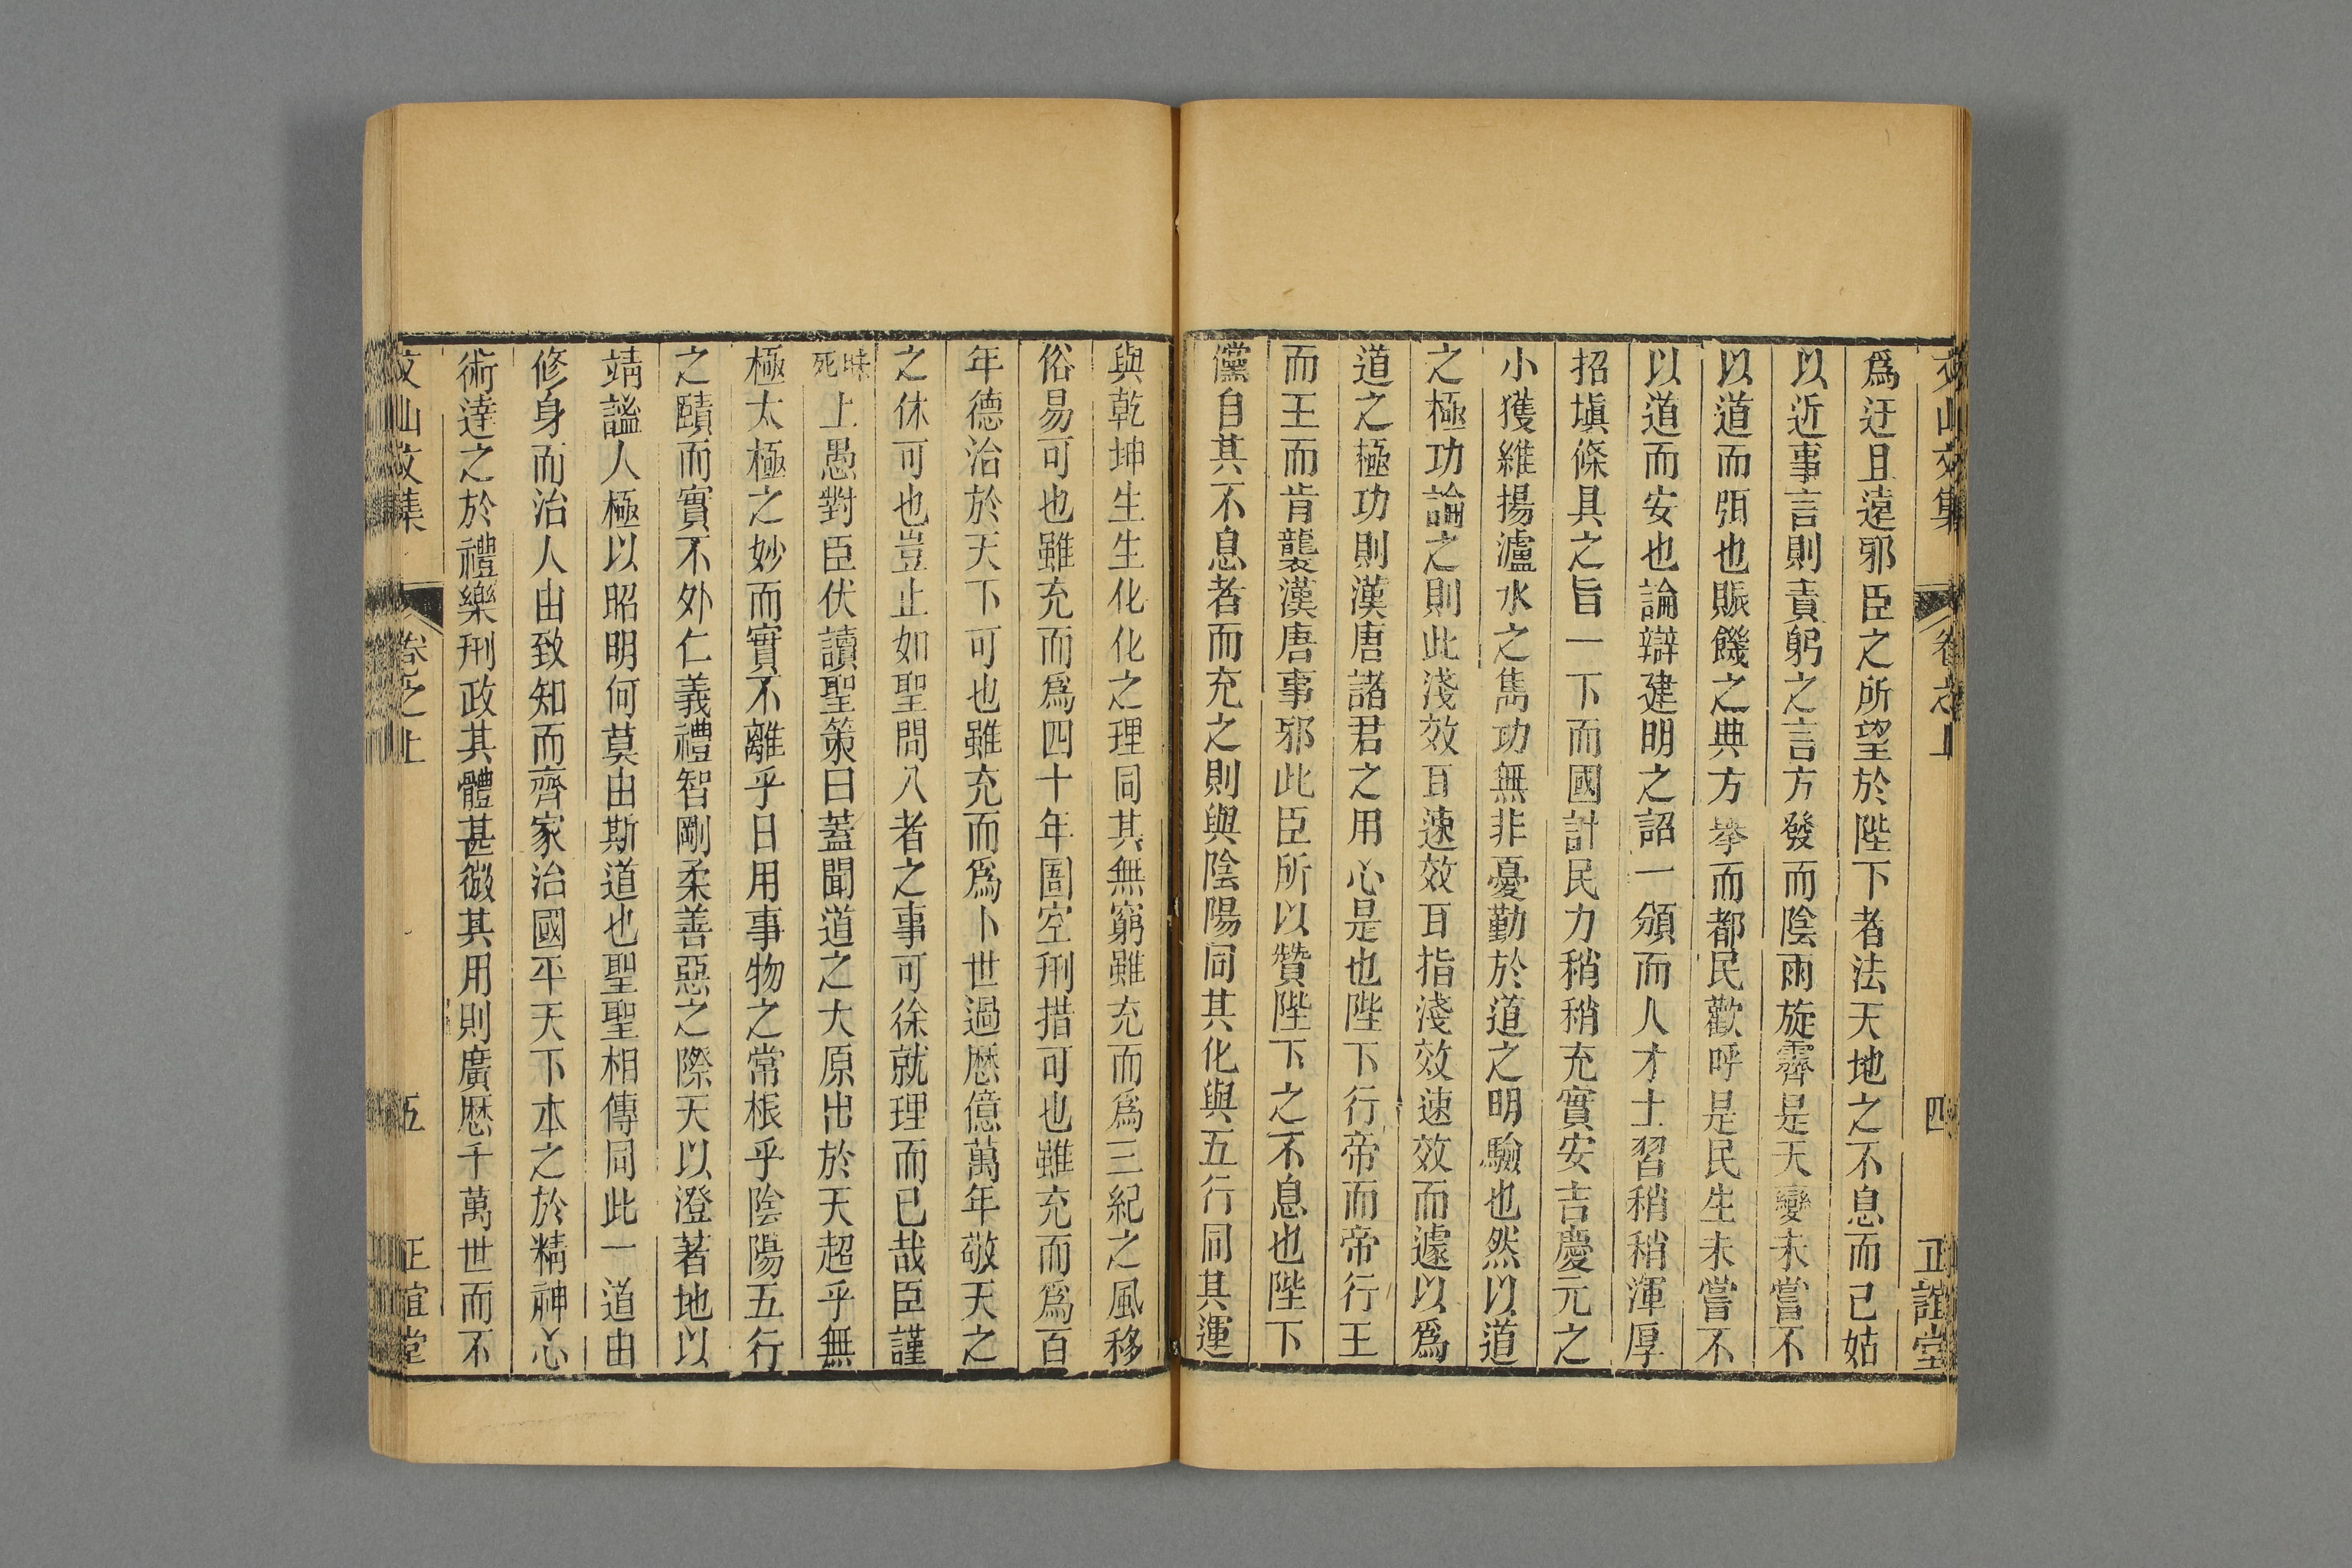 文山文集 卷之上 四 正誼堂
爲迂且遠邪臣之所望於陛下者法天地之不息而已姑
以近事言則責躬之言方發而陰雨旋霽是天變未嘗不
以道而弭也賑饑之典方舉而都民歡呼是民生未嘗不
以道而安也論辯建明之詔一頒而人才士習稍稍渾厚
招塡條具之旨一下而國計民力稍稍充實安吉慶元之
小獲維揚瀘水之雋功無非憂勤於道之明驗也然以道
之極功論之則此淺效耳速效耳指淺效速效而遽以爲
道之極功則漢唐諸君之用心是也陛下行帝而帝行王
而王而肯襲漢唐事邪此臣所以贊陛下之不息也陛下
儻自其不息者而充之則與陰陽同其化與五行同其運
與乾坤生生化化之理同其無窮雖充而爲三紀之風移
俗易可也雖充而爲四十年圄空刑措可也雖充而爲百
年德洽於天下可也雖充而爲卜世過歷億萬年敬天之
之休可也豈止如聖問八者之事可徐就理而已哉臣謹
昧死上愚對臣伏讀聖策曰蓋聞道之大原出於天超乎無
極太極之妙而實不離乎日用事物之常根乎陰陽五行
之賾而實不外仁義禮智剛柔善惡之際天以澄著地以
靖謐人極以昭明何莫由斯道也聖聖相傳同此一道由
修身而治人由致知而齊家治國平天下本之於精神心
術達之於禮樂刑政其體甚微其用則廣歷千萬世而不
文山文集 卷之上 五 正誼堂